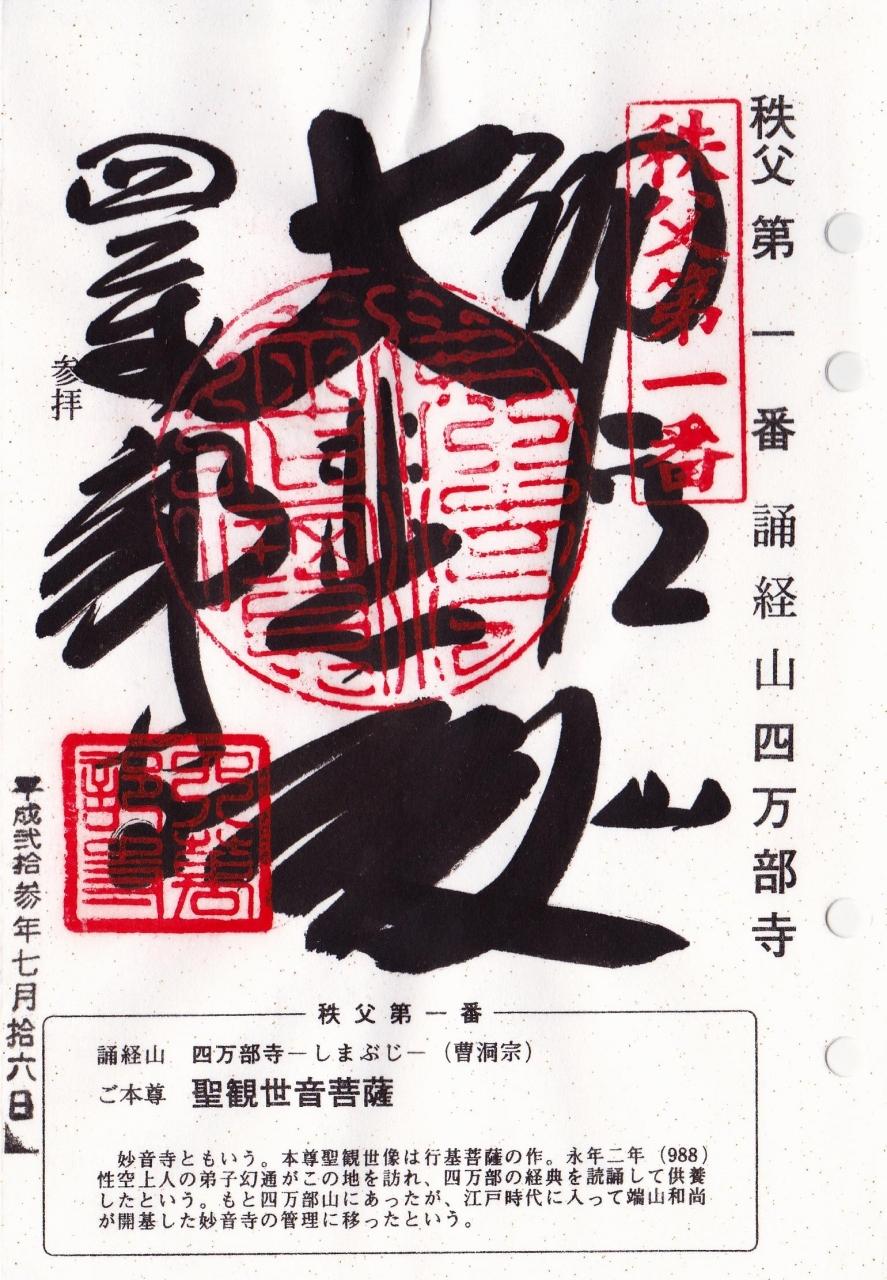 秩父第一番 誦経山四万部寺
秩父第一番
誦経山
大悲殿
四萬部寺
参拝
平成弐拾参年七月拾六日
秩父第一番
誦経山 四万部寺－しまぶじ－（曹洞宗）
ご本尊 聖観世音菩薩
妙音寺ともいう。本尊聖観世像は行基菩薩の作。永年二年（988）
性空上人の弟子幻通がこの地を訪れ、四万部の経典を読誦して供養
したという。もと四万部山にあったが、江戸時代に入って端山和尚
が開基した妙音寺の管理に移ったという。